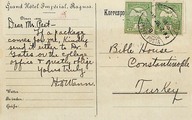 Grand Hotel Imperial, Ragusa
Dear Mr. Peet -
If a package
comes for me, kindly
send it either to Dr.
Gates or the college
office & greatly oblige
Yours truly
Bible House
Constantinople
Turkey